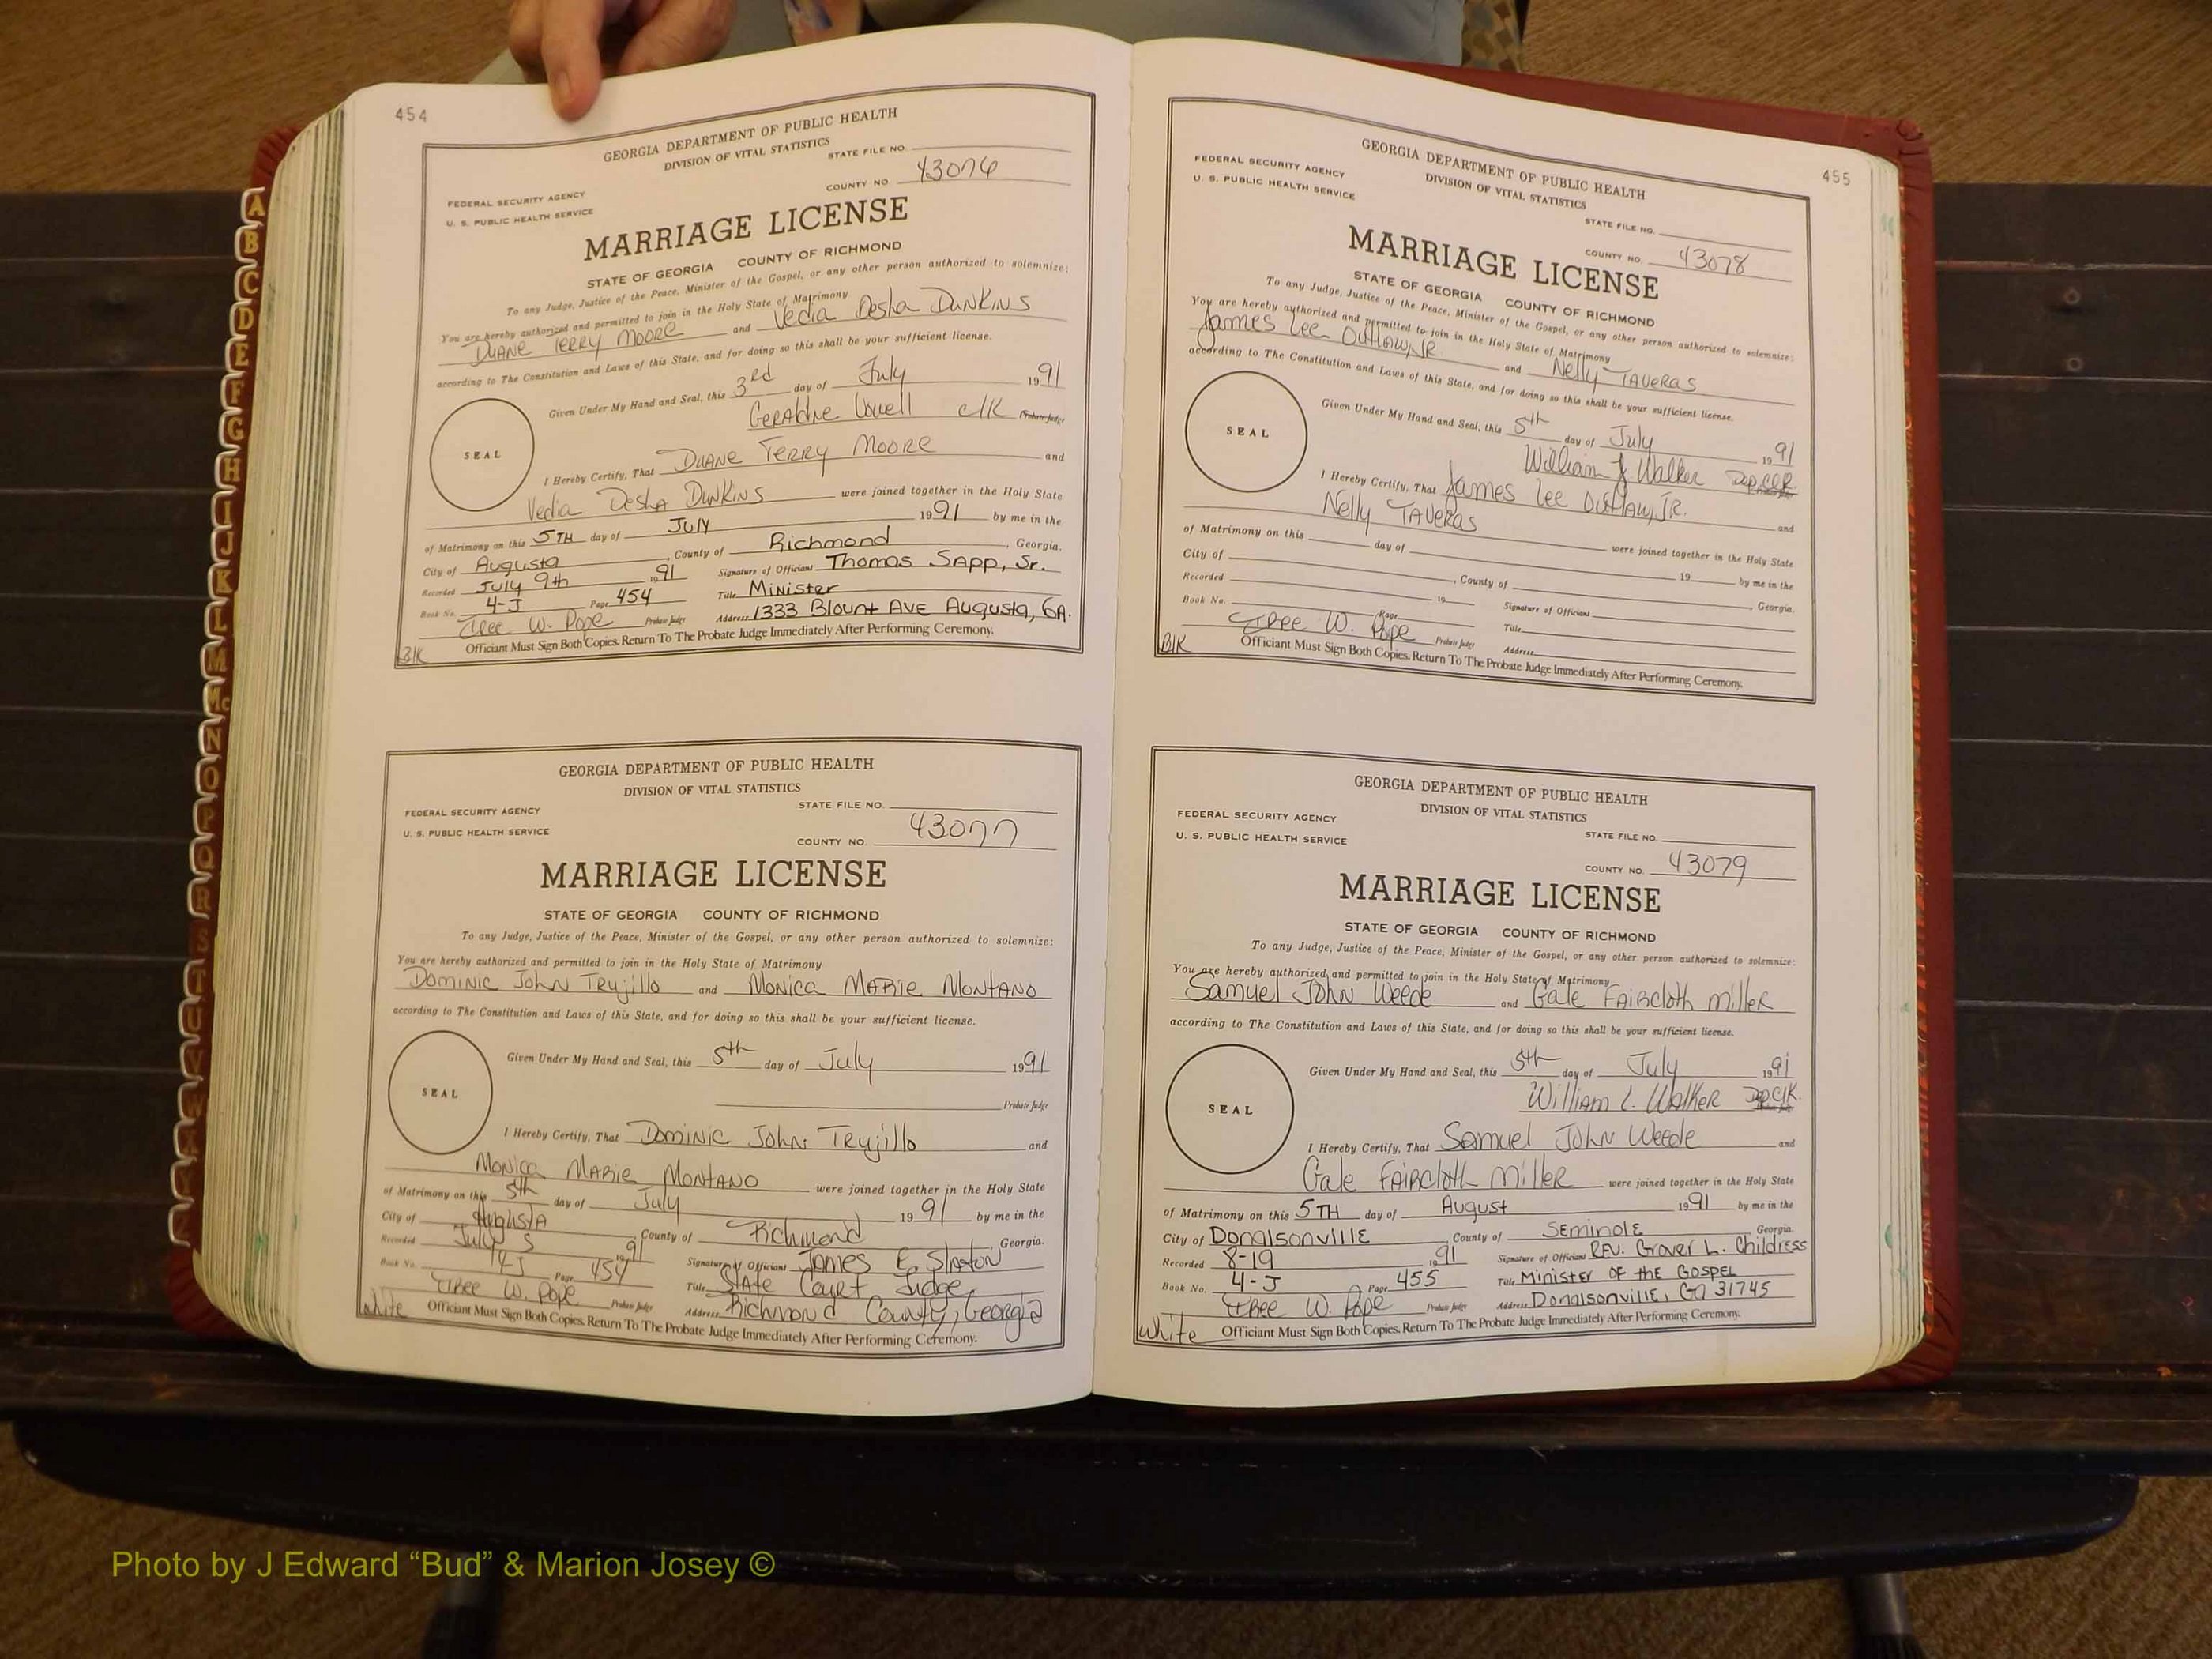 454
GEORGIA DEPARTMENT OF PUBLIC HEALTH
DIVISION OF VITAL STATISTICS
STATE FILE NO.
FEDERAL SECURITY AGENCY
COUNTY NO. 43076
U. S. PUBLIC HEALTH SERVICE
MARRIAGE LICENSE
STATE OF GEORGIA COUNTY OF RICHMOND
To any Judge, Justice of the Peace, Minister of the Gospel, or any other person authorized to solemnize:
You are hereby authorized and permitted to join in the Holy State of Matrimony
Duane Terry Moore and Vedia Desha Dunkins
according to The Constitution and Laws of this State, and for doing so this shall be your sufficient license.
Given Under My Hand and Seal, this 3rd day of July 1991
Geraldine clk Probate Judge
SEAL
I Hereby Certify, That Duane Terry Moore and
Vedia Desha Dunkins were joined together in the Holy State
of Matrimony on this 5TH day of July 1991 by me in the
City of Augusta, County of Richmond, Georgia.
Recorded July 9th 1991 Signature of Officiant Thomas Sapp, Sr.
Book No. 4-J Page 454 Title Minister
W. Pope Probate Judge Address 1333 Blount AVE Augusta, GA.
Officiant Must Sign Both Copies. Return To The Probate Judge Immediately After Performing Ceremony.
Blk
GEORGIA DEPARTMENT OF PUBLIC HEALTH
DIVISION OF VITAL STATISTICS
FEDERAL SECURITY AGENCY
STATE FILE NO.
U. S. PUBLIC HEALTH SERVICE
COUNTY NO. 43077
MARRIAGE LICENSE
STATE OF GEORGIA COUNTY OF RICHMOND
To any Judge, Justice of the Peace, Minister of the Gospel, or any other person authorized to solemnize:
You are hereby authorized and permitted to join in the Holy State of Matrimony
Dominic John Trujillo and Monica Marie Montano
according to The Constitution and Laws of this State, and for doing so this shall be your sufficient license.
Given Under My Hand and Seal, this 5th day of July 1991
Probate Judge
SEAL
I Hereby Certify, That Dominic John Trujillo and
Monica Marie Montano were joined together in the Holy State
of Matrimony on this 5th day of July 1991 by me in the
City of Augusta, County of Richmond, Georgia.
Recorded July 5 1991 Signature of Officiant James E. Slaton
Book No. 4J Page 454 Title State Court Judge,
W. Pope Probate Judge Address Richmond County, Georgia
white Officiant Must Sign Both Copies. Return To The Probate Judge Immediately After Performing Ceremony.
455
GEORGIA DEPARTMENT OF PUBLIC HEALTH
DIVISION OF VITAL STATISTICS
FEDERAL SECURITY AGENCY
U. S. PUBLIC HEALTH SERVICE
STATE FILE NO.
COUNTY NO. 43078
MARRIAGE LICENSE
STATE OF GEORGIA COUNTY OF RICHMOND
To any Judge, Justice of the Peace, Minister of the Gospel, or any other person authorized to solemnize:
You are hereby authorized and permitted to join in the Holy State of Matrimony
James Lee Outlaw, JR and Nelly Taveras
according to The Constitution and Laws of this State, and for doing so this shall be your sufficient license.
Given Under My Hand and Seal, this 5th day of July 1991
William J Walker
SEAL
I Hereby Certify, That James Lee Outlaw, JR. and
Nelly Taveras were joined together in the Holy State
of Matrimony on this day of 19 by me in the
City of , County of , Georgia.
Recorded 19 Signature of Officiant
Book No. Page Title
W. Pope Probate Judge Address
Blk Officiant Must Sign Both Copies. Return To The Probate Judge Immediately After Performing Ceremony.
GEORGIA DEPARTMENT OF PUBLIC HEALTH
DIVISION OF VITAL STATISTICS
FEDERAL SECURITY AGENCY
U. S. PUBLIC HEALTH SERVICE
STATE FILE NO.
COUNTY NO. 43079
MARRIAGE LICENSE
STATE OF GEORGIA COUNTY OF RICHMOND
To any Judge, Justice of the Peace, Minister of the Gospel, or any other person authorized to solemnize:
You are hereby authorized and permitted to join in the Holy State of Matrimony
Samuel John Weede and Gale Faircloth Miller
according to The Constitution and Laws of this State, and for doing so this shall be your sufficient license.
Given Under My Hand and Seal, this 5th day of July 1991
William L. Walker
SEAL
I Hereby Certify, That Samuel John Weede and
Gale Faircloth Miller were joined together in the Holy State
of Matrimony on this 5TH day of August 1991 by me in the
City of Donalsonville, County of Seminole Georgia.
Recorded 8-19 1991 Signature of Officiant Rev. Grover L. Childress
Book No. 4-J Page 455 Title Minister of the Gospel
W. Pope Probate Judge Address Donalsonville, Ga 31745
white Officiant Must Sign Both Copies. Return To The Probate Judge Immediately After Performing Ceremony.
A
B
C
D
E
F
G
H
I
J
K
L
M
Mc
N
O
P
Q
R
S
T
U
V
W
Photo by J Edward “Bud” & Marion Josey ©